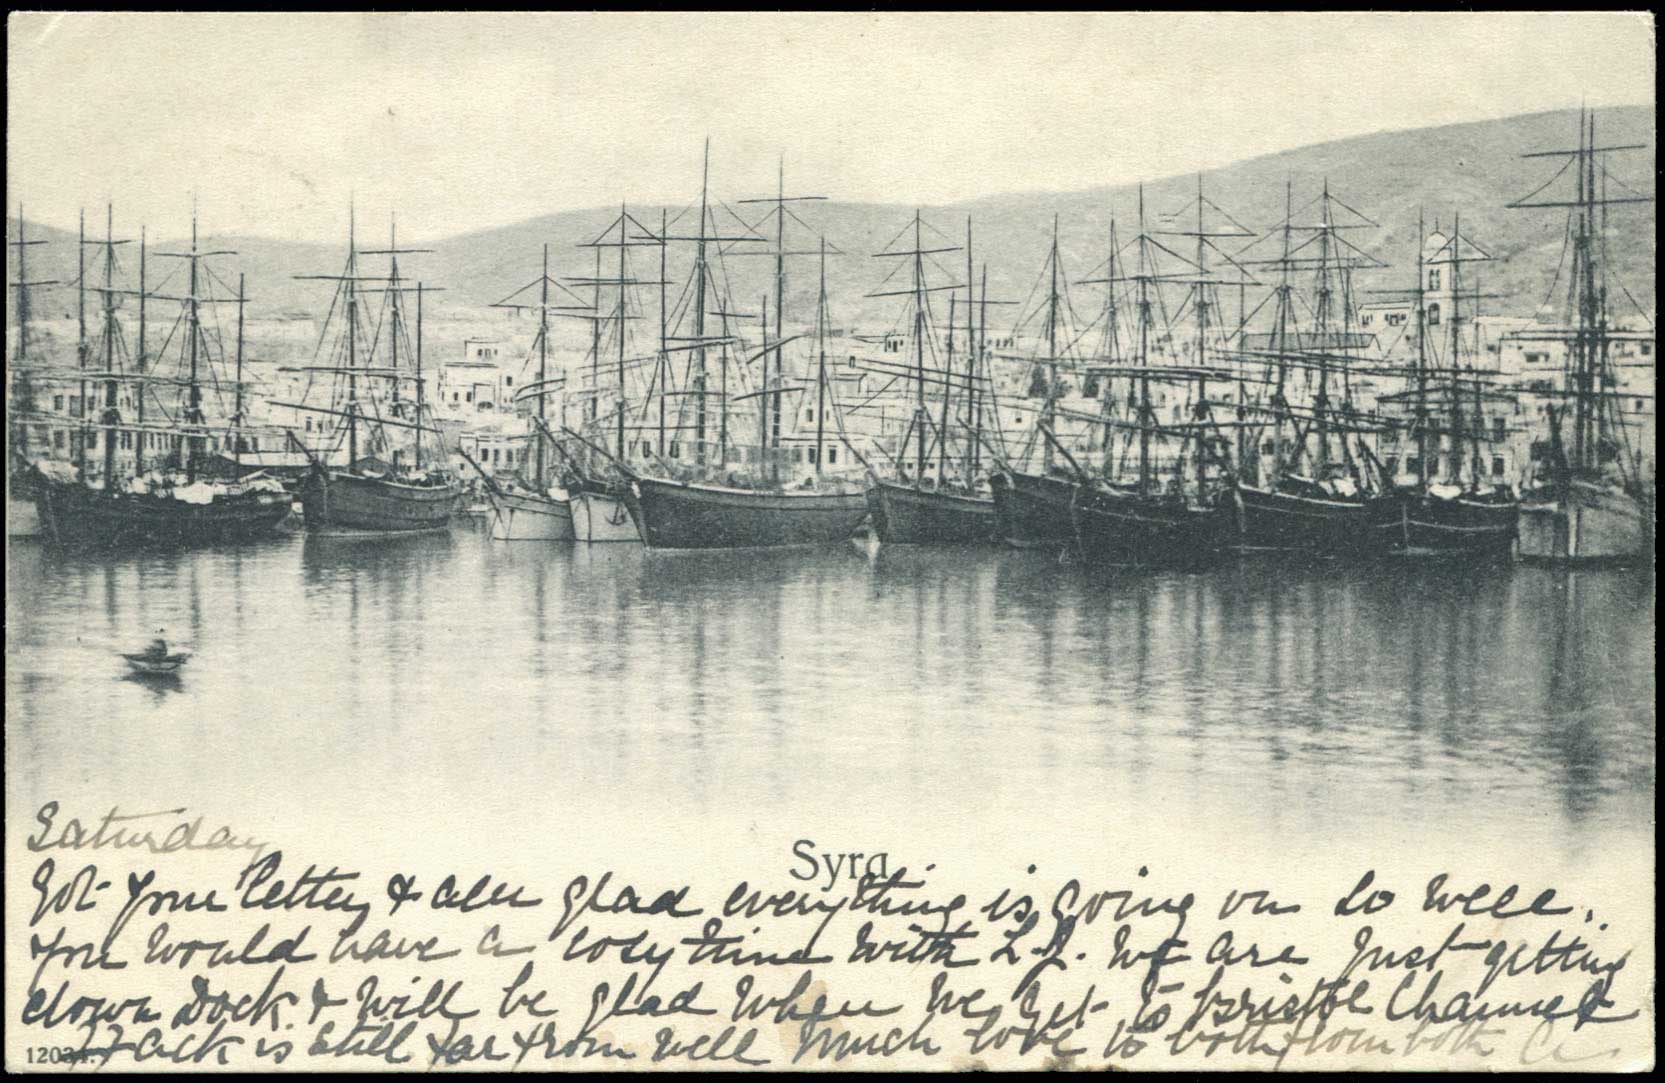 Saturday
Syra
Got your letter & am glad everything is going on so well.
you would have a cosy time with L.J. We are just getting
down Dock. & will be glad when we get to Bristol Channel
Jack is still far from well much love to both from both